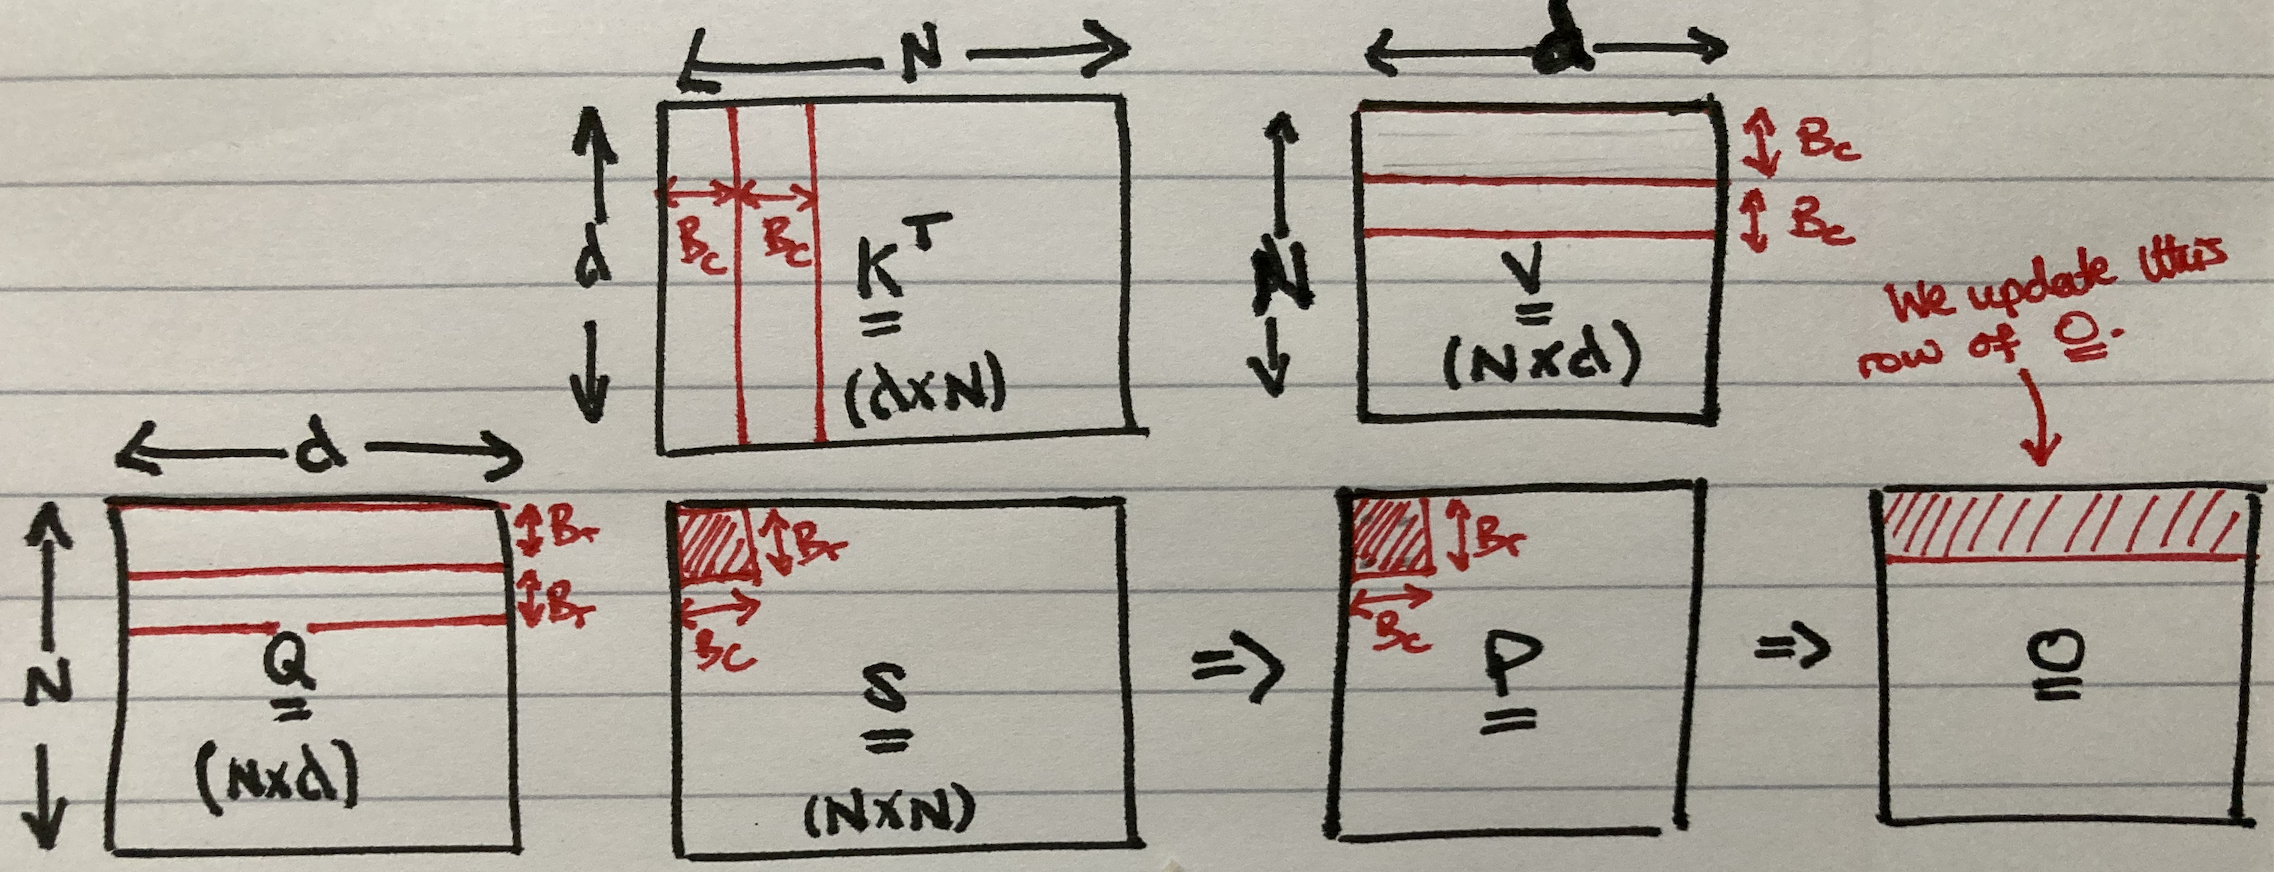 N
d
d
B_c
B_c
K^T
(d×N)
N
B_c
B_c
V
(N×d)
We update this
row of O.
d
N
B_r
B_r
Q
(N×d)
B_r
B_c
S
(N×N)
=>
B_r
B_c
P
=>
O